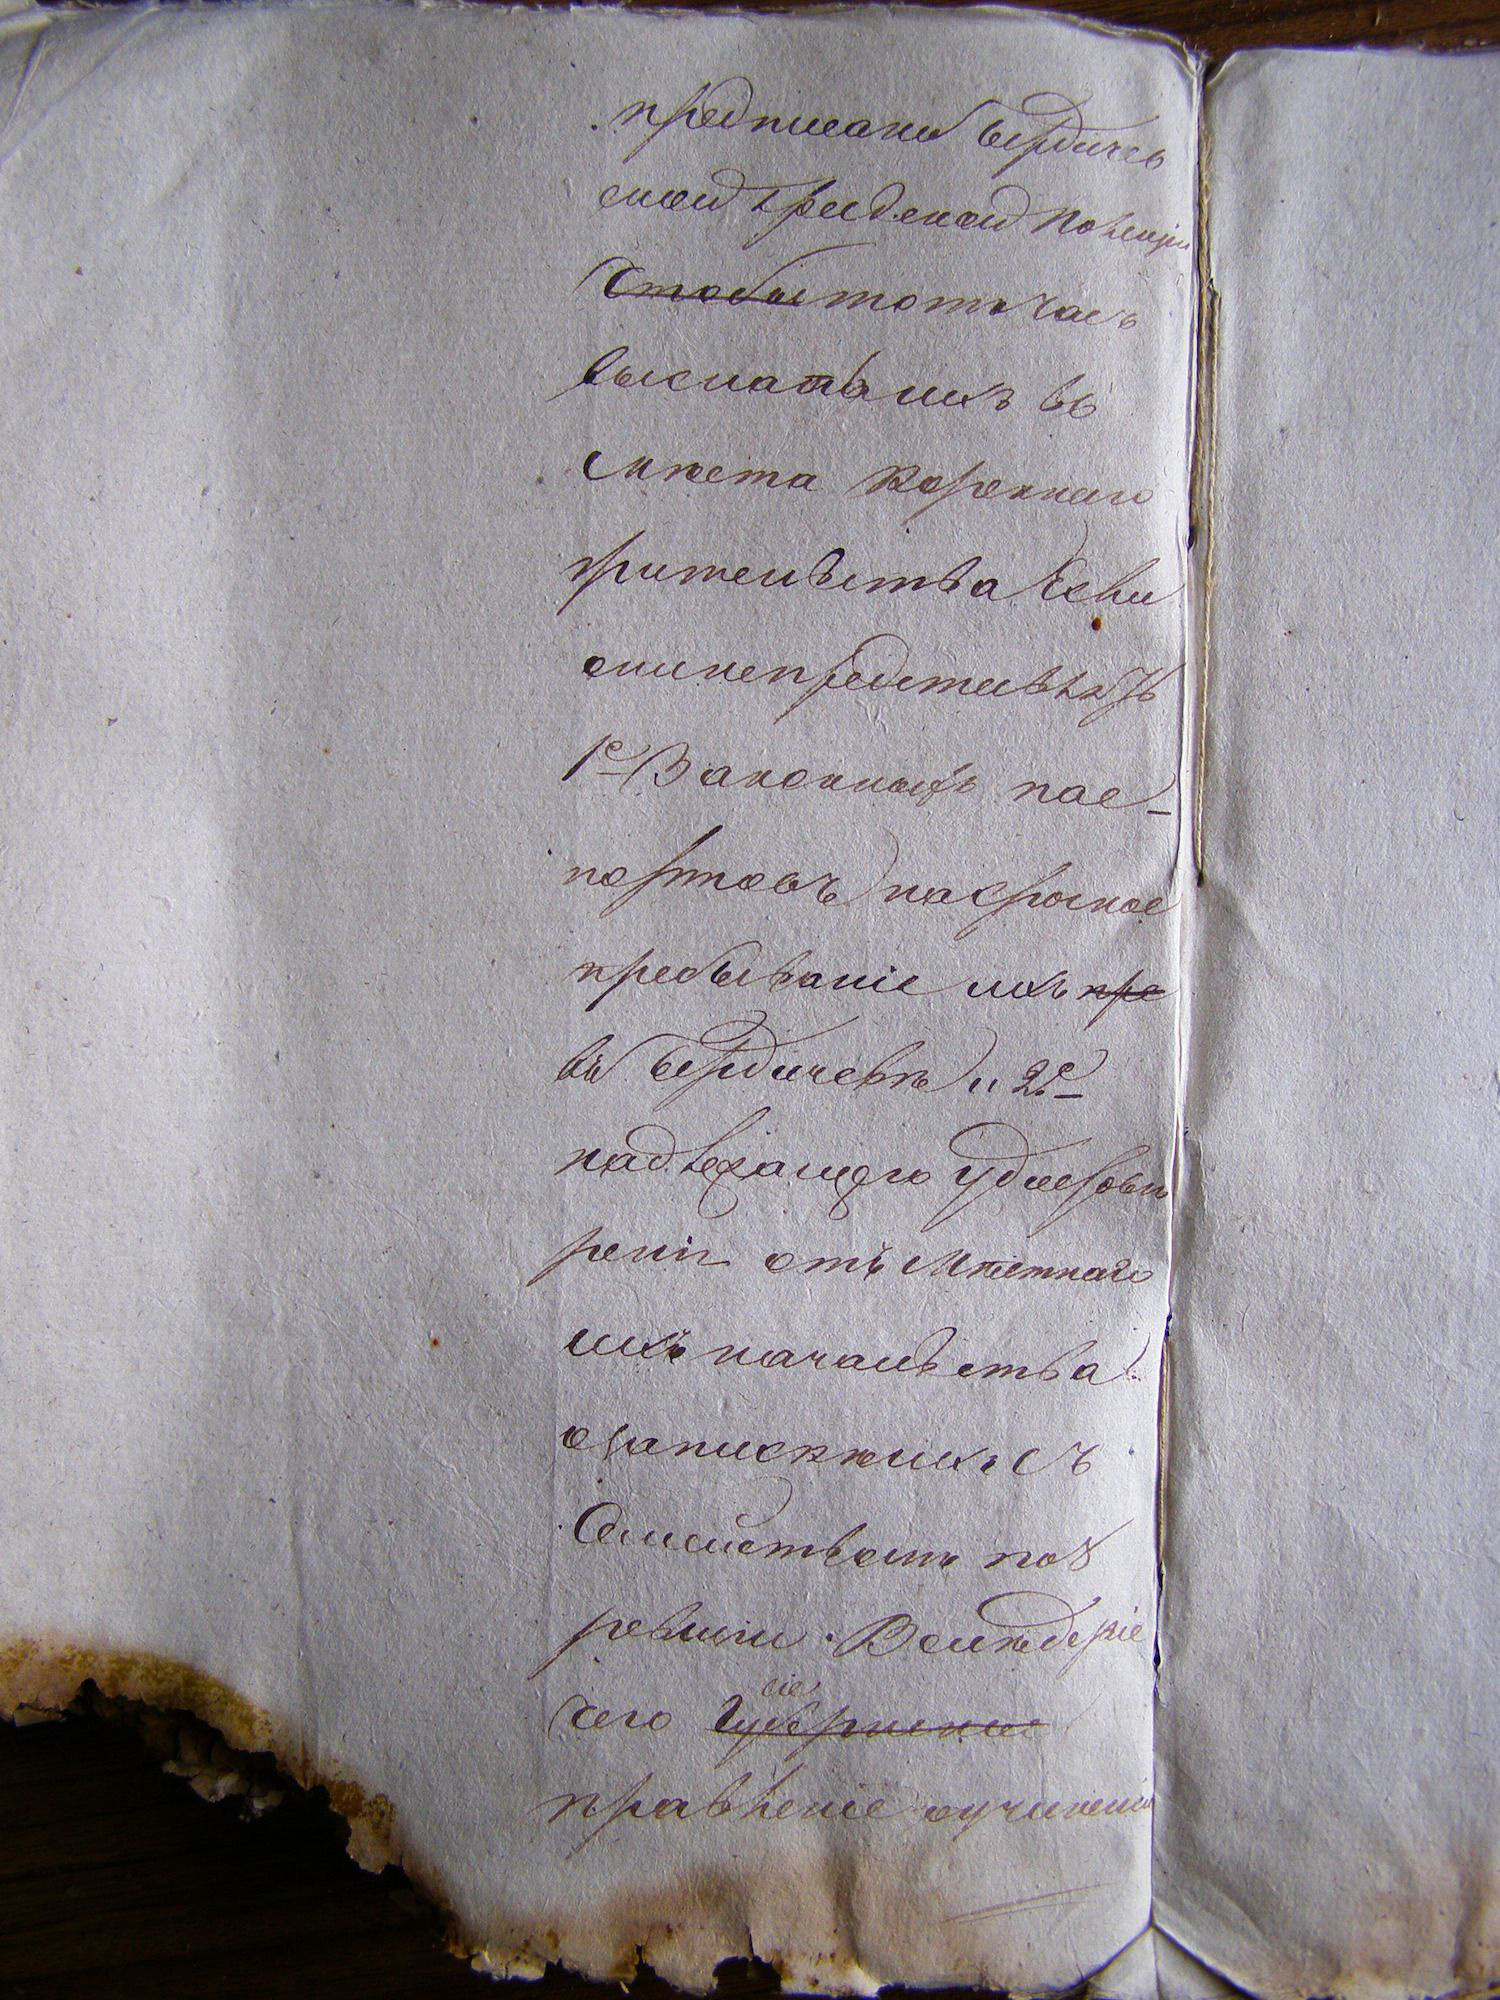 предписано Бердичев
ской Градской Полиціи
чтобы тотъ часъ
выслать ихъ въ
мѣста кореннаго
жительства если
они непредставятъ
1е Законныхъ пас-
портовъ на срочное
пребываніе ихъ пре
въ Бердичевѣ и 2е
надлежащего удостовѣ
ренія отъ мѣстнаго
ихъ начальства
о запискѣ ихъ съ
Семействомъ по 8
ревизіи. Вслѣдствіе
сіе
чего Губернское
правленіе